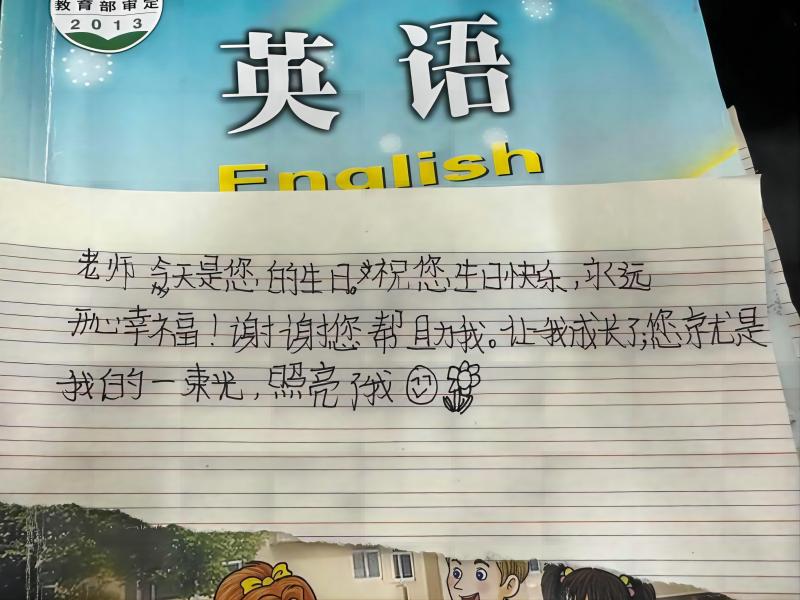 教育部审定
2013
英语
English
老师今天是您的生日。祝您生日快乐，永远
开心幸福！谢谢您帮助我。让我成长了，您就是
我的一束光，照亮了我